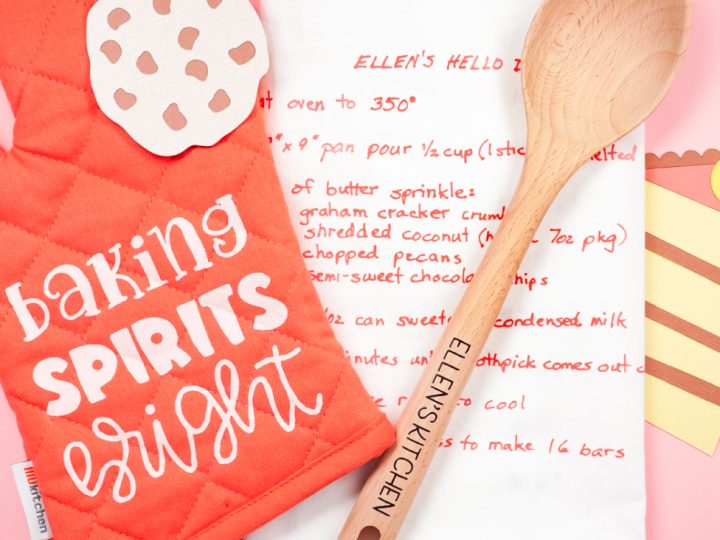 baking
SPIRITS
bright
MUkitchen
ELLEN'S HELLO
oven to 350°
" x 9" pan pour 1/2 cup (1 stick
of butter sprinkle:
graham cracker
shredded coconut ( 7oz pkg)
chopped pecans
semi-sweet
oz can condensed milk
comes out
to cool
to make 16 bars
ELLEN'S KITCHEN